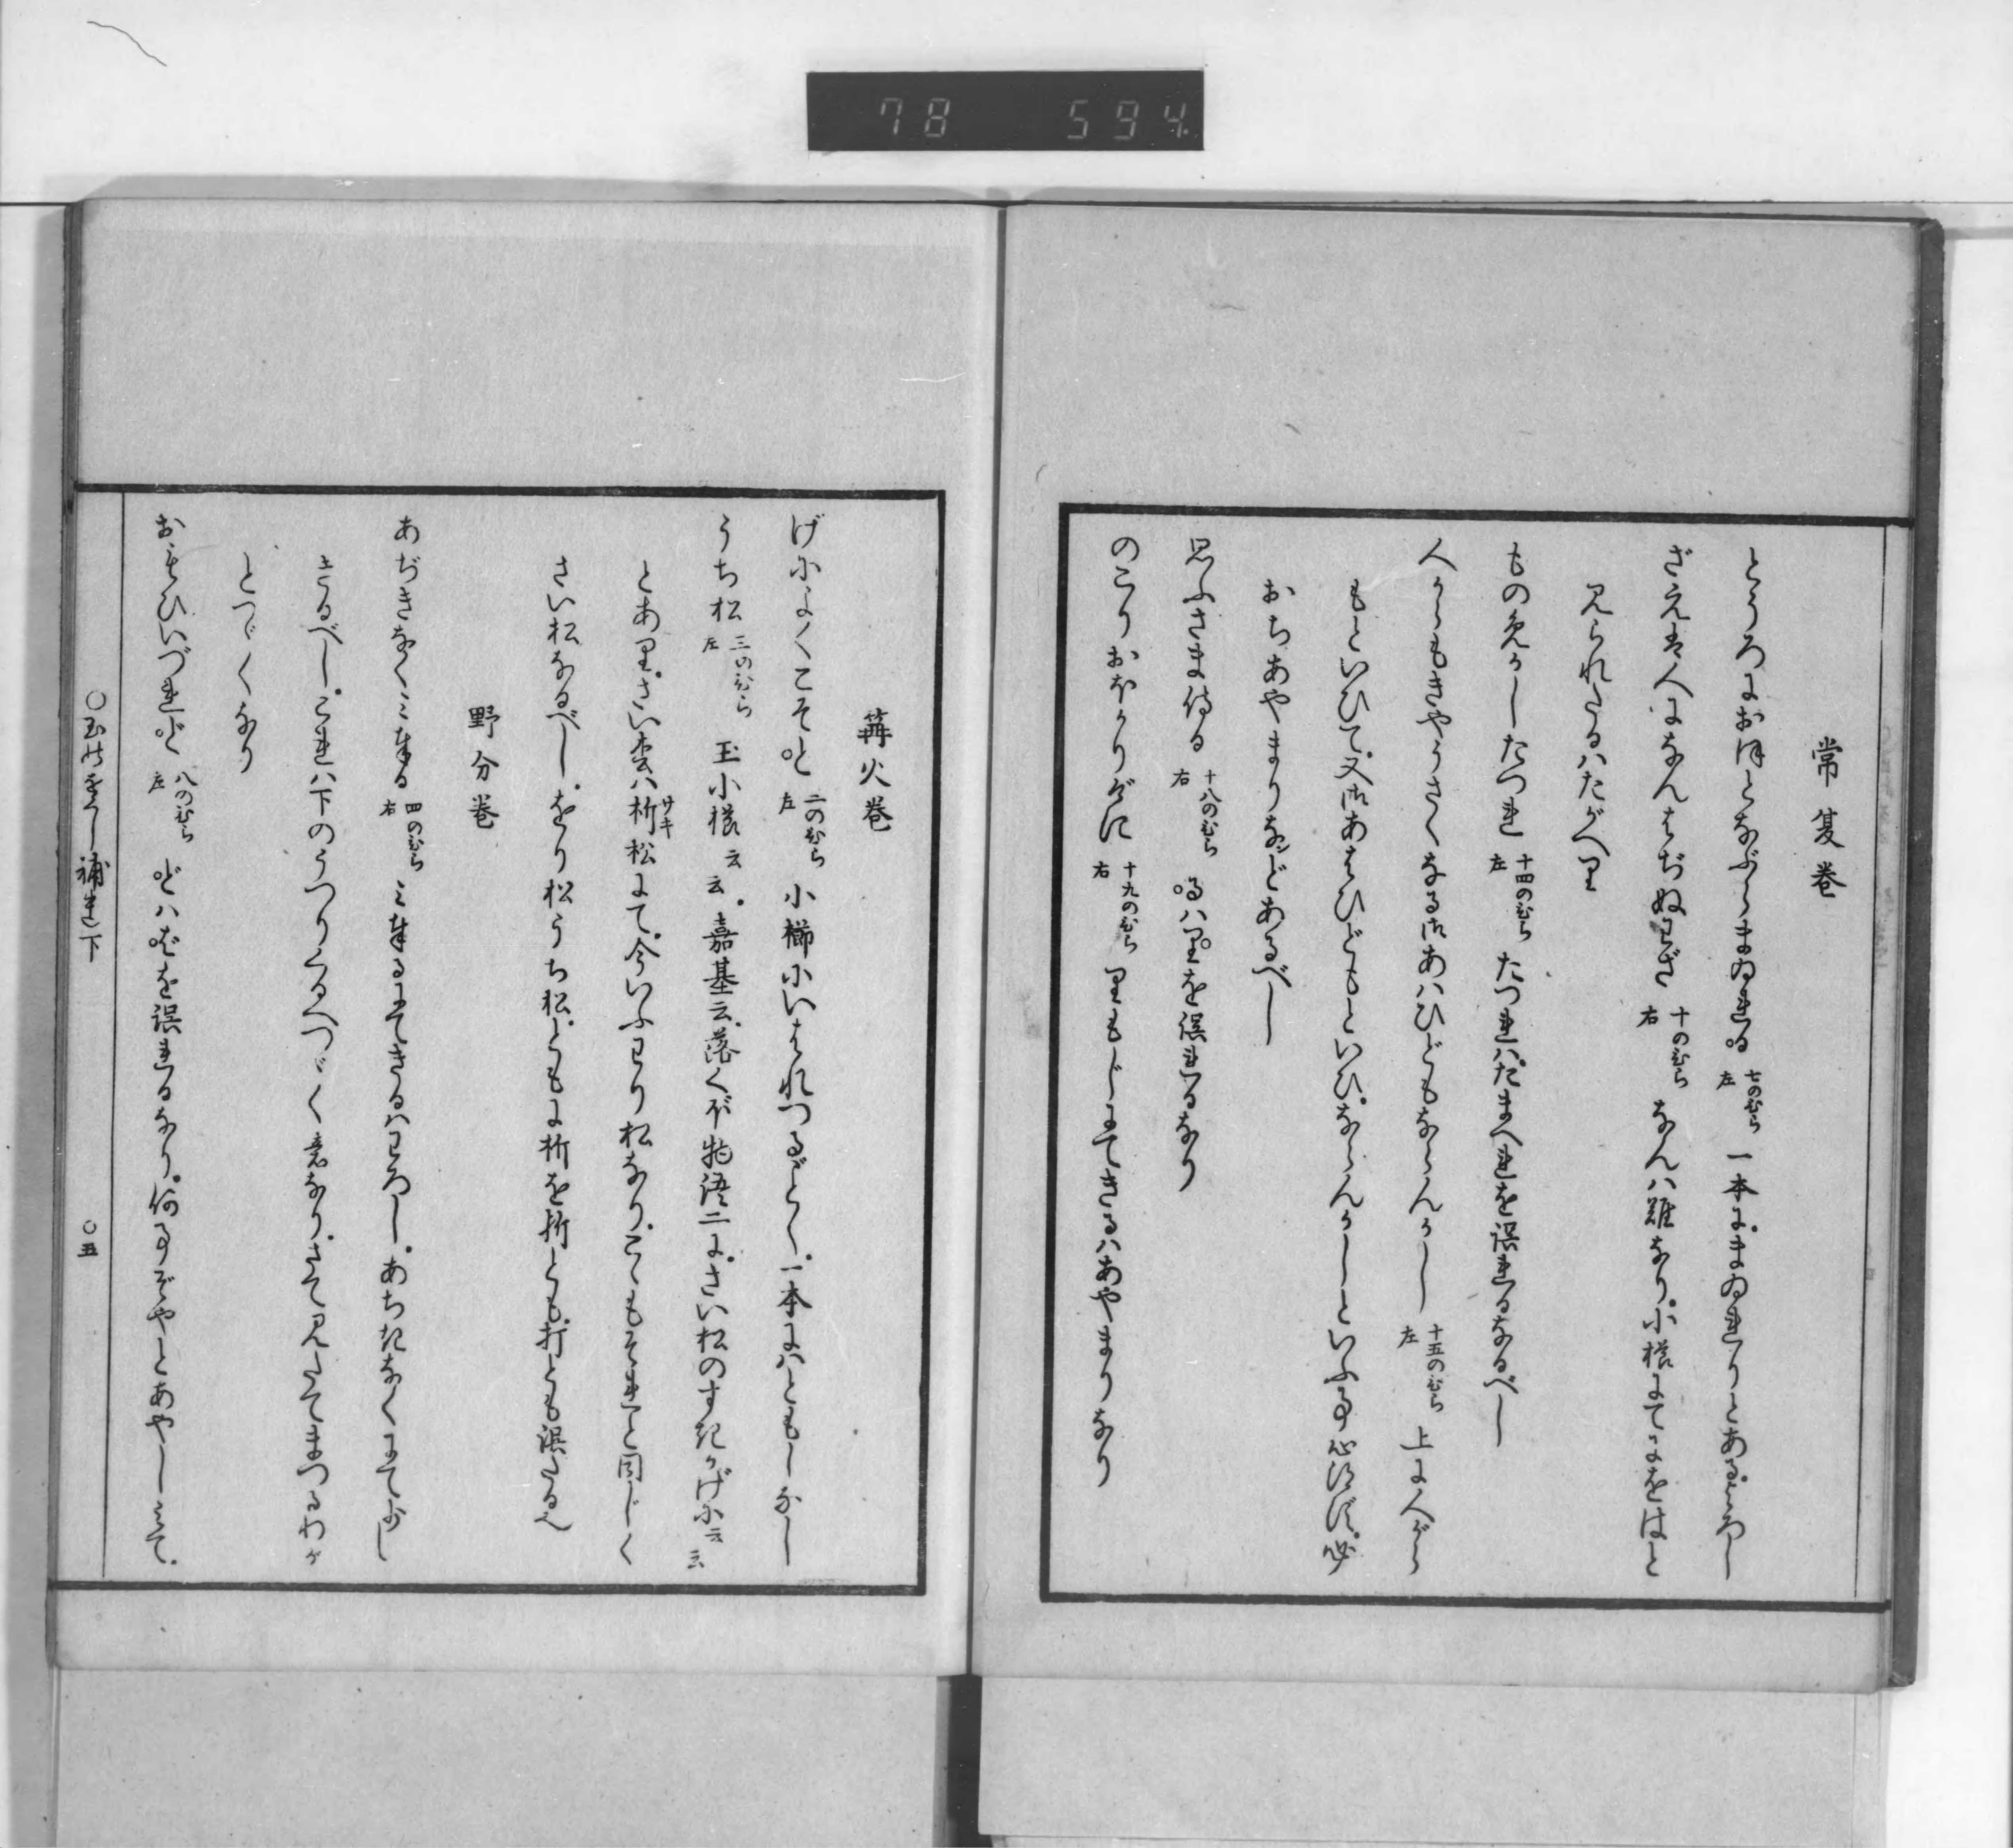 78 594
常夏巻
とうろにおほとなぶらまゐれる 七のひら左 一本に、まゐれりとある、よろし
ざえは人になんはぢぬわざ 十のひら右 なんハ難なり、小櫛にて、にをはと
見られたるハたがへり
もの免かしたつれ 十四のひら左 たつれハ、たまへれを誤れるなるべし
人からもきやうさくなる御あハひどもならんかし 十五のひら左 上に人がら
もといひて、又御あはひどもといひ、ならんかしといふ事心得ず、必
おちあやまりなどあるべし
思ふさま侍る 十八のひら右 るハりを誤れるなり
のこりおほかりぞに 十九のひら右 りもじにてきるハあやまりなり
篝火巻
げによくこそと 二のひら左 小櫛にいはれつるごとく、一本にハともしなし
うち松 三のひら左 玉小櫛云云、嘉基云、落くぼ物語二に、さい松のすきかげに云云
とあり、さい松ハ析サキ松にて、今いふわり松なり、こゝもそれと同じく
さい松なるべし、をり松うち松、ともに析を折とも、打とも誤たる也
野分巻
あぢきなくミ奉る 四のひら右 ミ奉るにてきるハわろし、あぢきなくにて少し
きるべし、これハ下のうつりくるへつゞく意なり、さて見たてまつるわが
とつゞくなり
おもひいづれど 八のひら左 どハばを誤れるなり、何事ぞやとあやしミて、
○玉のをくし補遺下 ○五